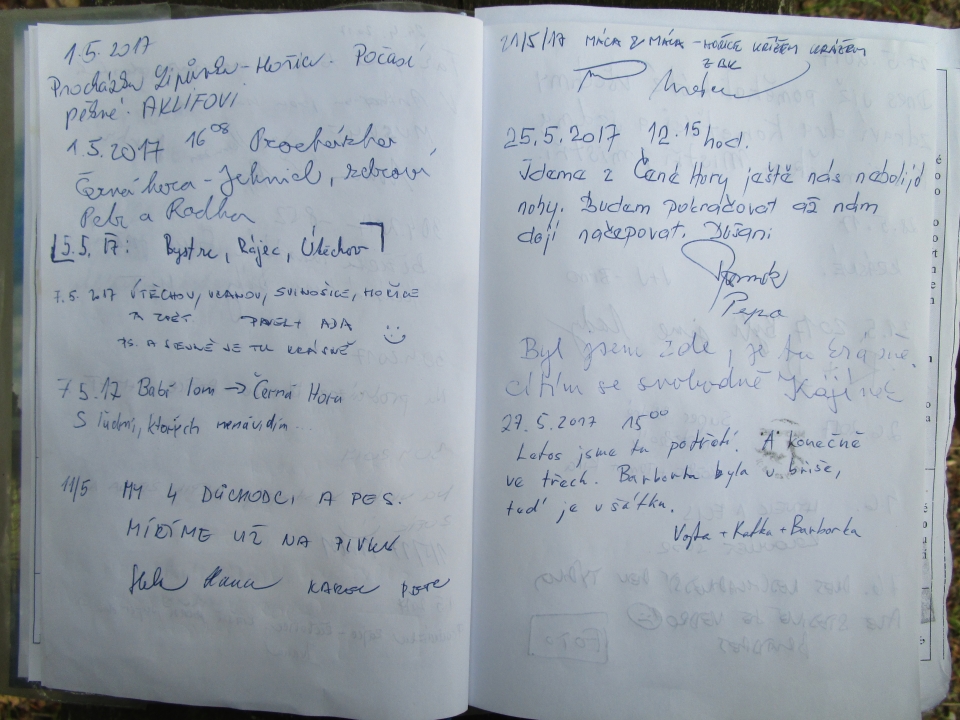 1.5.2017
Procházka Lipůvka-Hořice. Počasí
pěkné. AKLIFOVI
1.5.2017 16 08 Procházka
Černá hora - Jehnice, zebrová
Petr a Radka
5.5.17: Bystrc, Rájec, Útěchov
7.5.2017 ÚTĚCHOV, VRANOV, SVINOŠICE, HOŘICE
A ZPĚT PAVEL + AJA
PS. A SEVŘENĚ JE TU KRÁSNĚ
7.5.17 Babí lom → Černá Hora
S lidmi, kterých nenávidím...
11/5 MY 4 DŮCHODCI A PES.
MÍŘÍME UŽ NA PIVKO
Hana KAREL PETR
21/5/17 MÁCA & MÁCA - HOŘICE KŘÍŽEM KRÁŽEM
Z BK
25.5.2017 12.15 hod.
Jdeme z Černé Hory jaště nás nebolijó
nohy. Budem pokračovat až nám
dojí načepovat. Dušani
Pepa
Byl jsem zde, je tu krásně.
cítím se svobodně Kájínek
27.5.2017 15 00
Letos jsme tu potřetí. A konečně
ve třech. Barborka byla v břiše,
teď je v šátku.
Vojta + Katka + Barborka